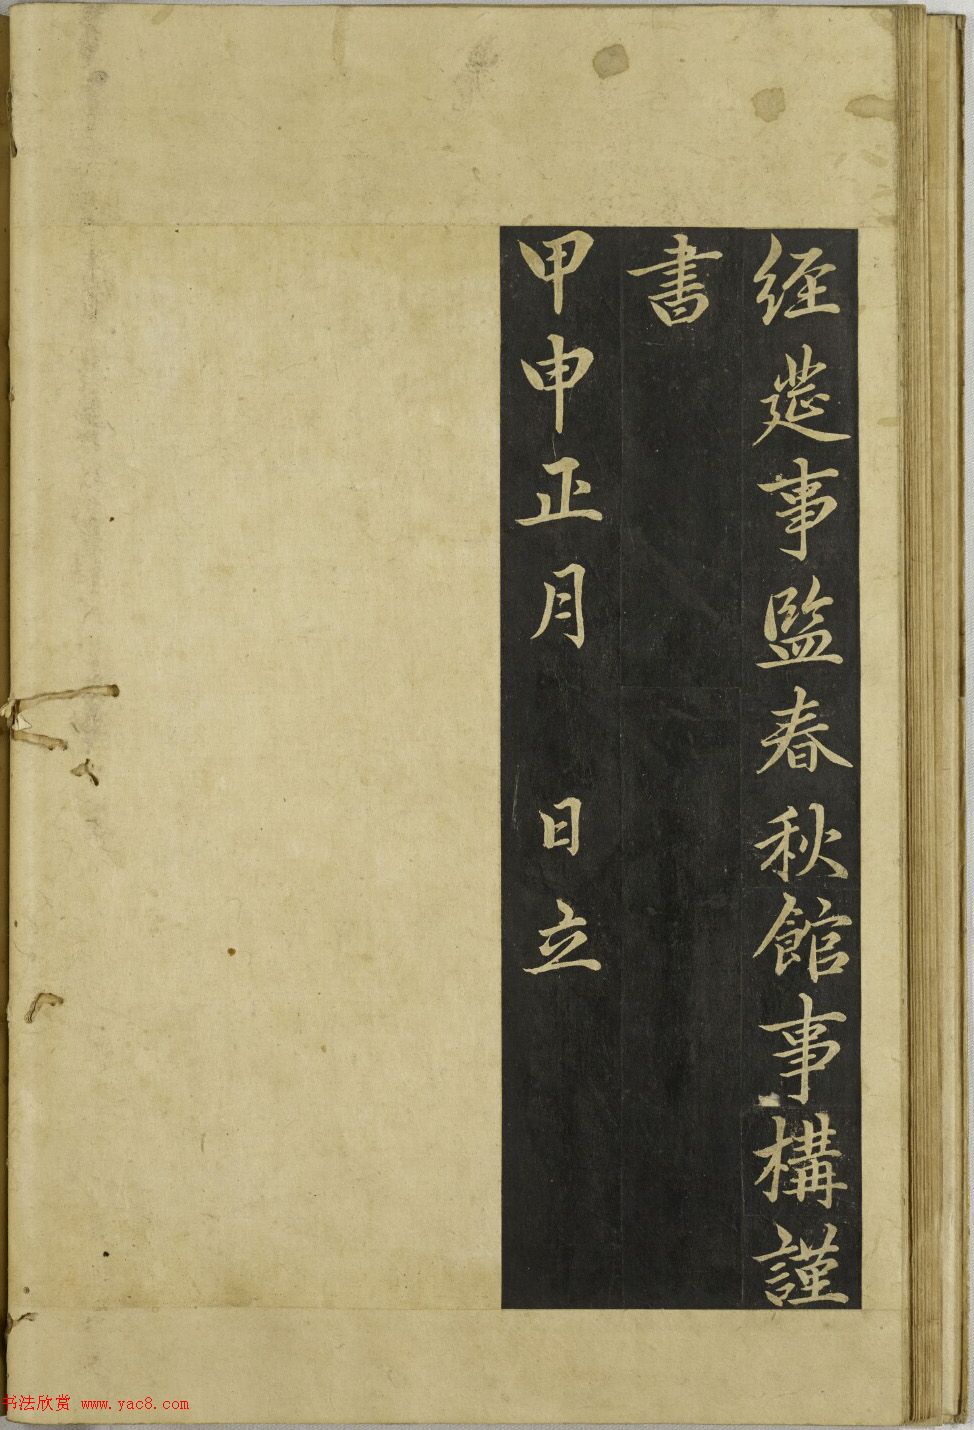 經筵事監春秋館事構謹
書
甲申正月 日立
书法欣赏 www.yac8.com